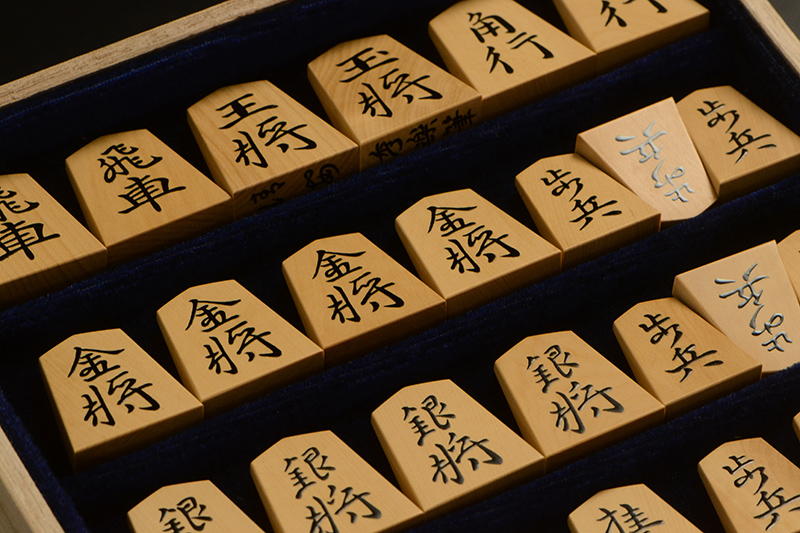 飛車
飛車
王将
玉将
角行
行
金将
金将
金将
金将
歩兵
歩兵
歩兵
銀
銀将
銀将
銀将
歩兵
歩兵
桂
歩兵